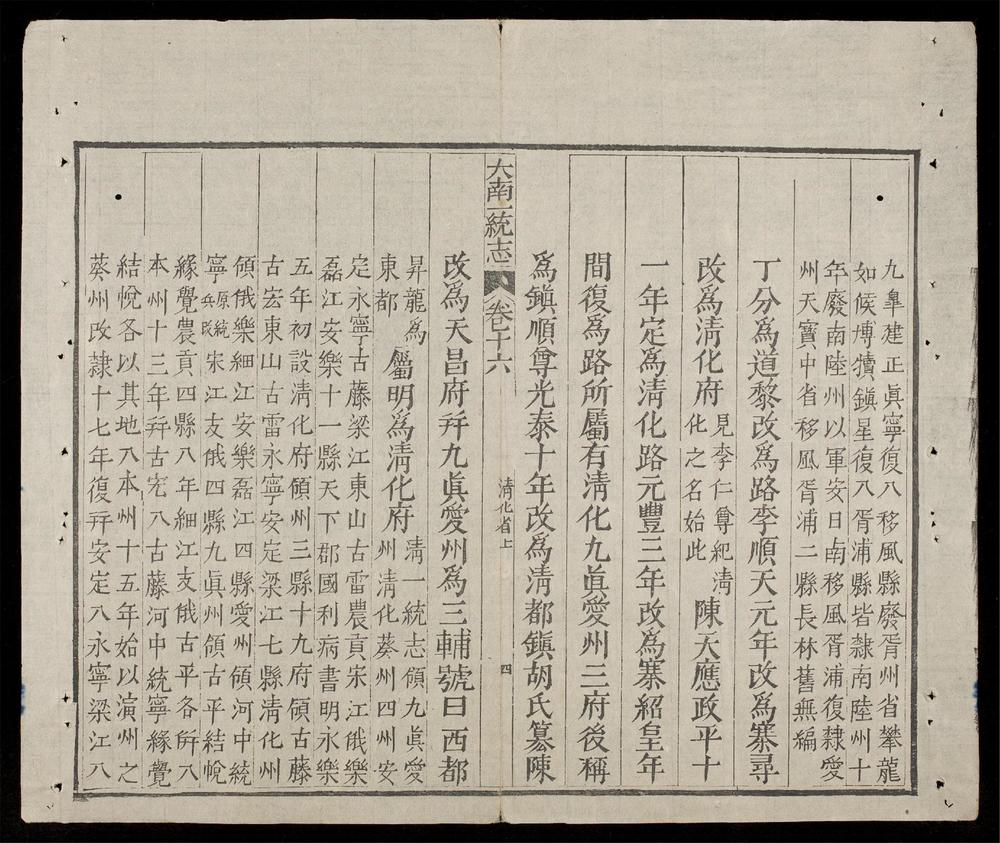 九皐建正眞寧復入移風縣廢胥州省攀龍
如侯博犢鎭星復入胥浦縣皆隸南陸州十
年廢南陸州以軍安日南移風胥浦復隸愛
州天寶中省移風胥浦二縣長林舊無編
丁分爲道黎改爲路李順天元年改爲寨尋
改爲淸化府
見李仁尊紀淸
化之名始此
陳天應政平十
一年定爲淸化路元豐三年改爲寨紹皇年
間復爲路所屬有淸化九眞愛州三府後稱
爲鎭順尊光泰十年改爲淸都鎭胡氏篡陳
大南一統志
卷十六
淸化省上
四
改爲天昌府幷九眞愛州爲三輔號曰西都
昇龍爲
東都
屬明爲淸化府
淸一統志領九眞愛
州淸化葵州四州安
定永寧古藤梁江東山古雷農貢宋江俄樂
磊江安樂十一縣天下郡國利病書明永樂
五年初設淸化府領州三縣十九府領古藤
古宏東山古雷永寧安定梁江七縣淸化州
領俄樂細江安樂磊江四縣愛州領河中統
寧
原統
兵改
宋江支俄四縣九眞州領古平結悅
緣覺農貢四縣八年細江支俄古平各倂入
本州十三年幷古宏入古藤河中統寧緣覺
結悅各以其地入本州十五年始以演州之
葵州改隸十七年復幷安定入永寧梁江入